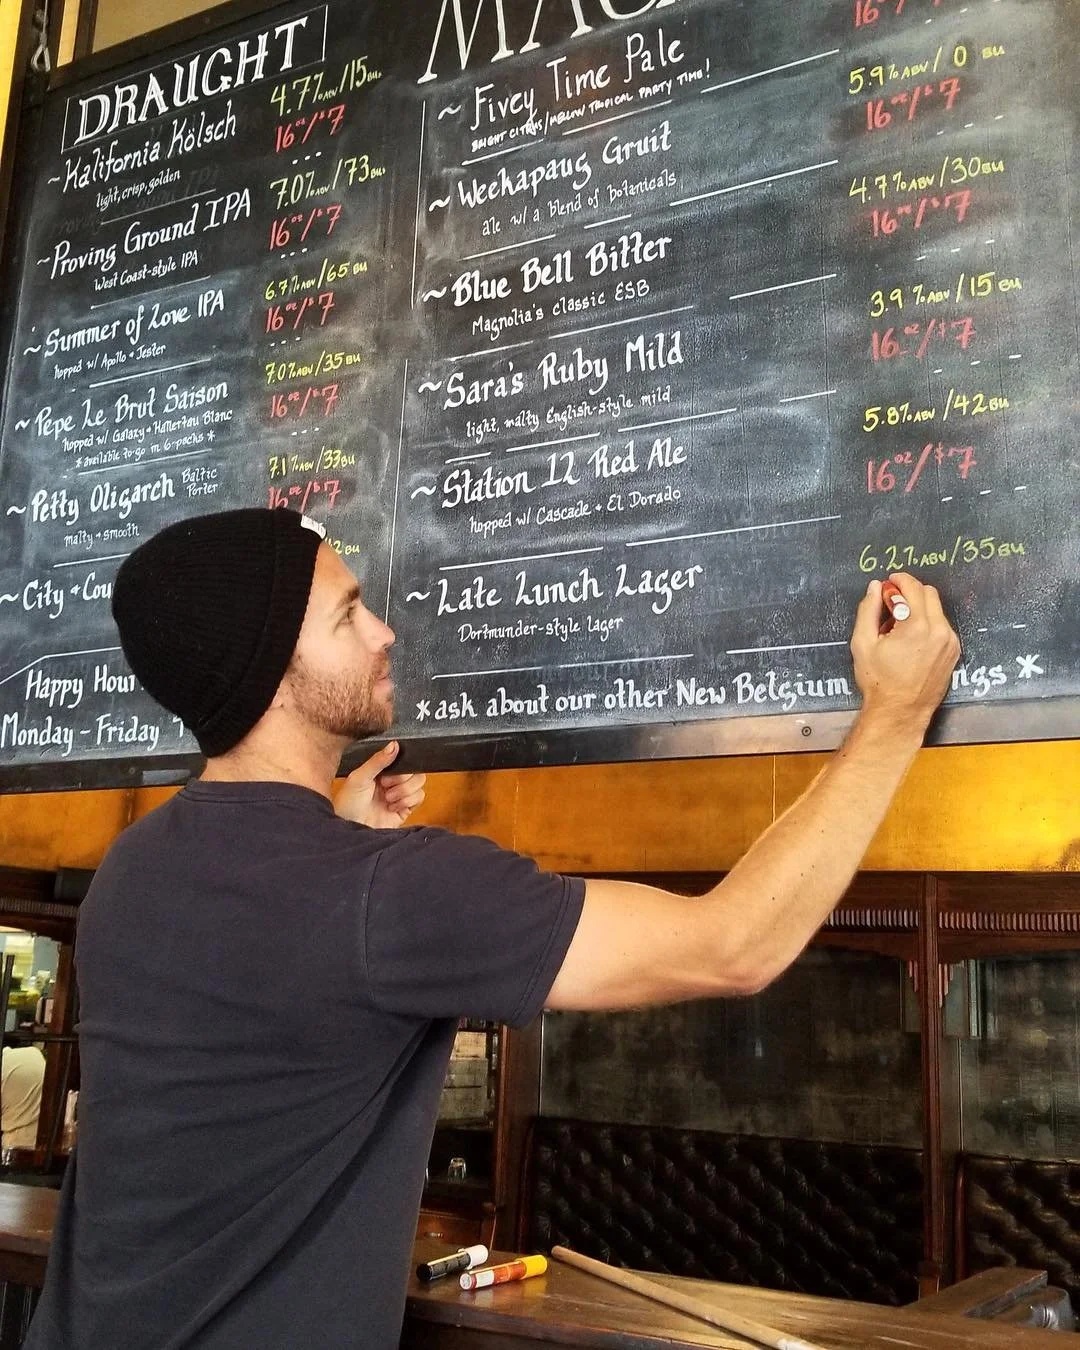 DRAUGHT
~Kalifornia Kölsch 4.7%ABV/15BU
light, crisp, golden 16oz/$7
~Proving Ground IPA 7.0%ABV/73BU
West Coast-style IPA 16oz/$7
~Summer of Love IPA 6.7%ABV/65BU
hopped w/ Apollo + Jester 16oz/$7
~Pepe Le Brut Saison 7.0%ABV/35BU
hopped w/ Galaxy + Hallertau Blanc 16oz/$7
*available to-go in 6-packs*
~Petty Oligarch Baltic Porter 7.1%ABV/33BU
malty + smooth 16oz/$7
~City +
Happy Hour
Monday - Friday
16oz/
~Fivey Time Pale 5.9%ABV/0 BU
BRIGHT CITRUS/MELLOW TROPICAL PARTY TIME! 16oz/$7
~Weekapaug Gruit 4.7%ABV/30BU
ale w/ a blend of botanicals 16oz/$7
~Blue Bell Bitter 3.9%ABV/15BU
Magnolia's classic ESB 16oz/$7
~Sara's Ruby Mild 5.8%ABV/42BU
light, malty English-style mild 16oz/$7
~Station 12 Red Ale 6.2%ABV/35BU
hopped w/ Cascade + El Dorado
~Late Lunch Lager
Dortmunder-style lager
*ask about our other New Belgium